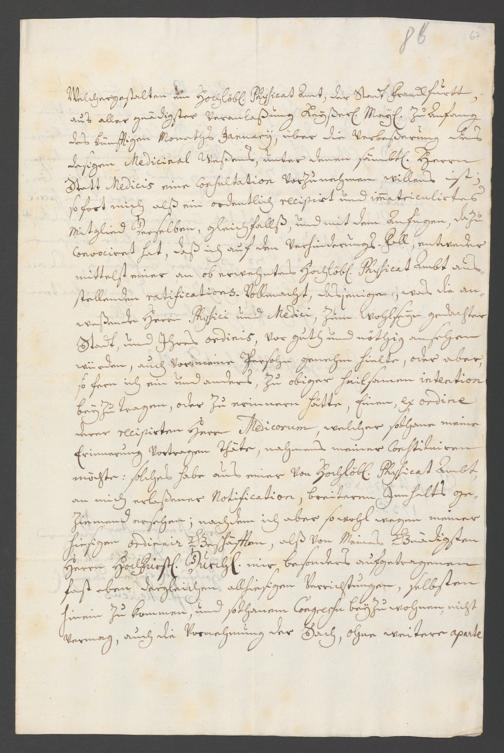 86 67
Welchergestalten ein Hochlöbl. Physicat Amt, der Statt Franckfurtt,
aus aller gnädigster Veranlaßung Kayserl. May. zu Anfang
des künfftigen Monaths January, über die Verbeßerung des
dasigen Medicinal Weßens, unter denen sämbtl. Herrn
Statt Medicis eine Consultation vorzunehmen willens ist;
sofort mich alß ein ordentlich recipirt und immatriculirtes
Mitglied derselben, gleichfallß, und mit dem Anfügen, dazu
convociret hat, daß ich auf den Verhinderungs-Fall, entweder
mittelst einer an ob erwehntes Hochlöbl. Physicat Ambt aus
stellenden ratifications-Vollmacht, dasjenige, was die an-
weßende Herrn Physici und Medici, zum Wohlseyn gedachter
Statt, und Ihres ordens, vor guth und nöthig ansehen
würden, auch vor meine Persohn genehm halte, oder aber,
so fern ich ein und anders, zu obiger heilsamen intention
beyzutragen, oder zu erinnern hätte, Einen, ex ordine
derer recipirten Herrn Medicorum, welcher sothane meine
Erinnerung vortragen thäte, nahmens meiner constituiren
möchte: solches habe aus einer von Hochlöbl. Physicat Ambt,
an mich erlaßener Notification, breiteren Innhalts ge-
ziemend ersehen; nachdem ich aber sowohl wegen meiner
hiesigen ordinair Geschäfften, alß von Meines Gnädigsten
Herrn Hochfürstl. Durchl. mir besonders aufgetragenen
fast eben dergleichen allhiesigen Verrichtungen, selbsten
hinein zu kommen, und sothanem Congressu beyzuwohnen nicht
vermag, auch die Vornehmung der Sach, ohne weitere aparte